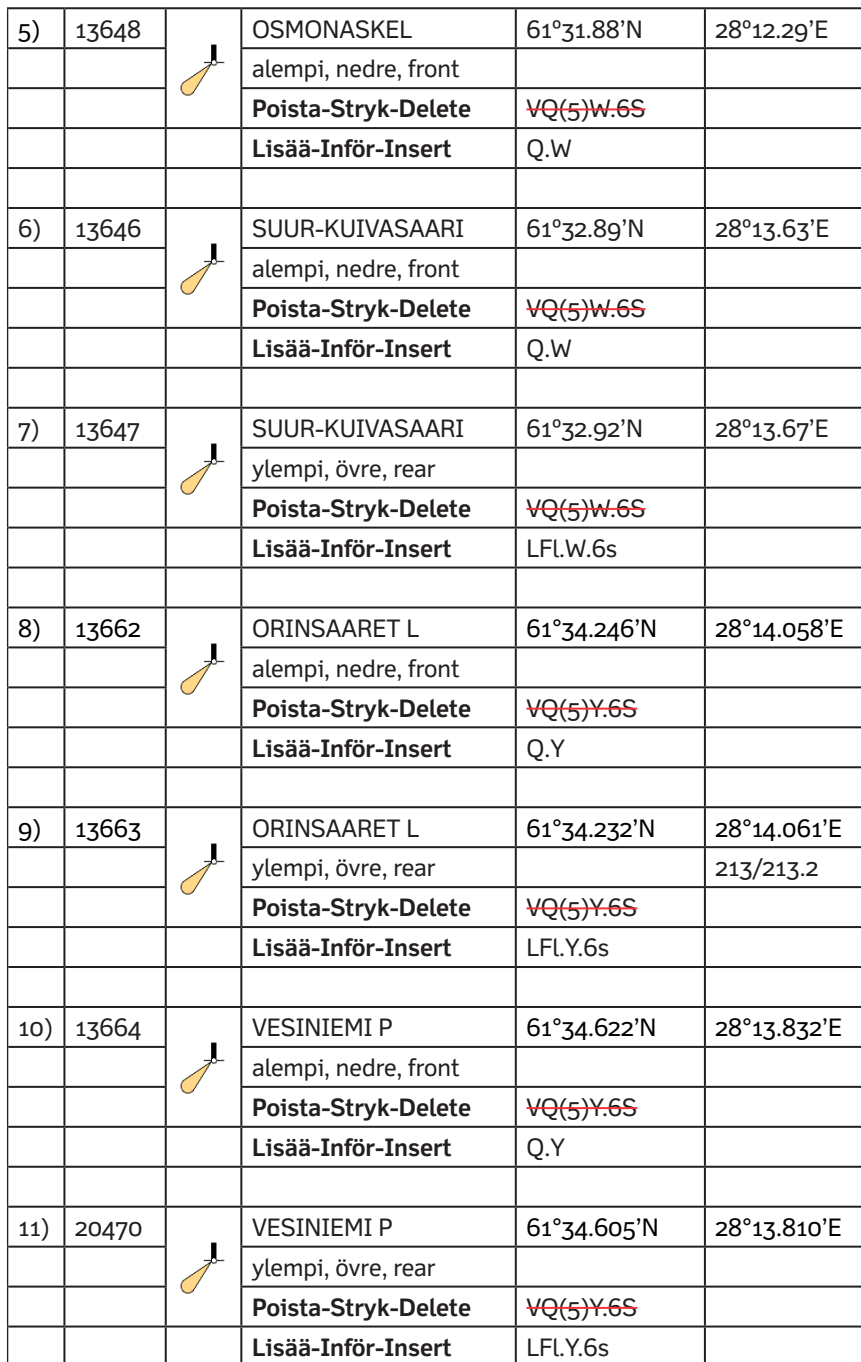 5) 13648 OSMONASKEL 61°31.88’N 28°12.29’E
alempi, nedre, front
Poista-Stryk-Delete VQ(5)W.6S
Lisää-Inför-Insert Q.W
6) 13646 SUUR-KUIVASAARI 61°32.89’N 28°13.63’E
alempi, nedre, front
Poista-Stryk-Delete VQ(5)W.6S
Lisää-Inför-Insert Q.W
7) 13647 SUUR-KUIVASAARI 61°32.92’N 28°13.67’E
ylempi, övre, rear
Poista-Stryk-Delete VQ(5)W.6S
Lisää-Inför-Insert LFl.W.6s
8) 13662 ORINSAARET L 61°34.246’N 28°14.058’E
alempi, nedre, front
Poista-Stryk-Delete VQ(5)Y.6S
Lisää-Inför-Insert Q.Y
9) 13663 ORINSAARET L 61°34.232’N 28°14.061’E
ylempi, övre, rear 213/213.2
Poista-Stryk-Delete VQ(5)Y.6S
Lisää-Inför-Insert LFl.Y.6s
10) 13664 VESINIEMI P 61°34.622’N 28°13.832’E
alempi, nedre, front
Poista-Stryk-Delete VQ(5)Y.6S
Lisää-Inför-Insert Q.Y
11) 20470 VESINIEMI P 61°34.605’N 28°13.810’E
ylempi, övre, rear
Poista-Stryk-Delete VQ(5)Y.6S
Lisää-Inför-Insert LFl.Y.6s